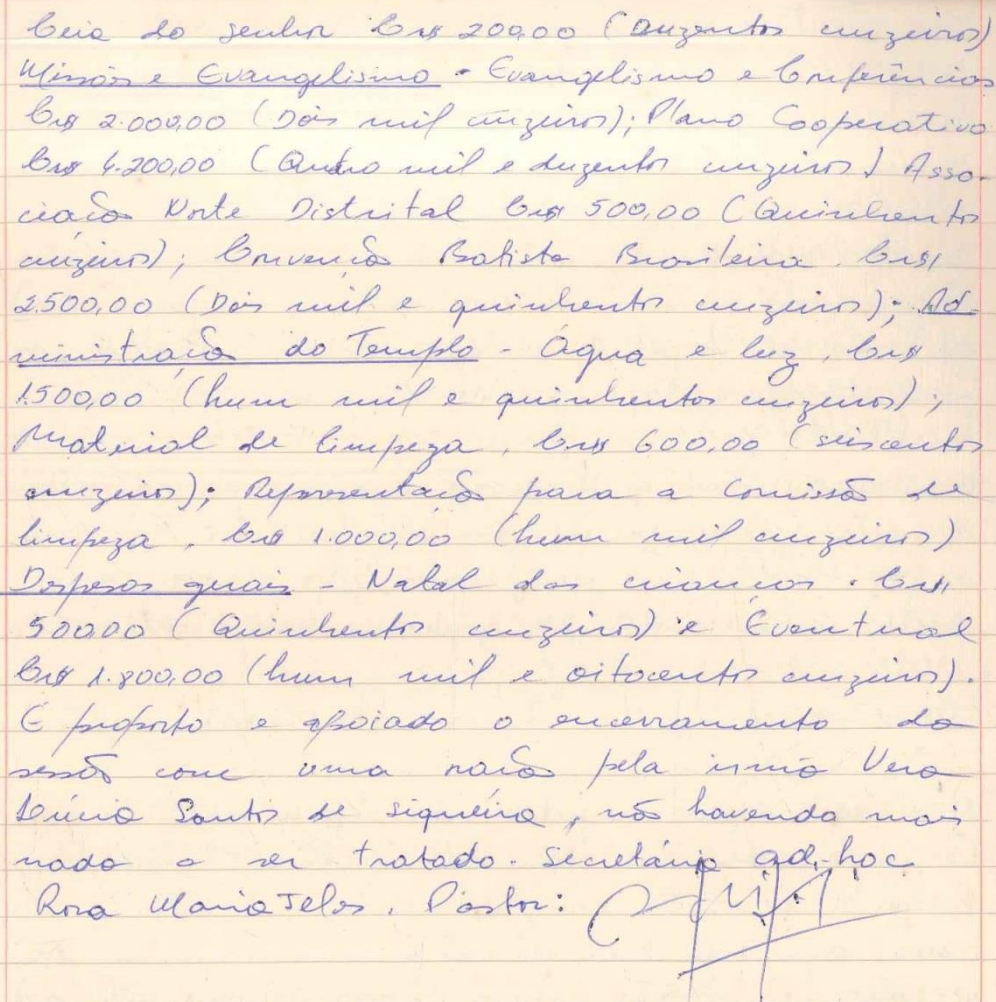 Ceia do Senhor Cr$ 200,00 (Duzentos cruzeiros)
Missões e Evangelismo - Evangelismo e Conferências
Cr$ 2.000,00 (Dois mil cruzeiros); Plano Cooperativo
Cr$ 4.200,00 (Quatro mil e duzentos cruzeiros) Asso-
ciação Norte Distrital Cr$ 500,00 (Quinhentos
cruzeiros); Convenção Batista Brasileira. Cr$
2.500,00 (Dois mil e quinhentos cruzeiros); Ad-
ministração do Templo - Água e luz. Cr$
1.500,00 (hum mil e quinhentos cruzeiros);
Material de limpeza. Cr$ 600,00 (seiscentos
cruzeiros); Representação para a Comissão de
limpeza. Cr$ 1.000,00 (hum mil cruzeiros)
Despesas gerais - Natal das crianças. Cr$
500,00 (Quinhentos cruzeiros) e Eventual
Cr$ 1.800,00 (hum mil e oitocentos cruzeiros).
É proposto e apoiado o encerramento da
sessão com uma oração pela irmã Vera
Lúcia Santos de Siqueira, não havendo mais
nada a ser tratado. Secretária ad-hoc
Rosa Maria Teles. Pastor: